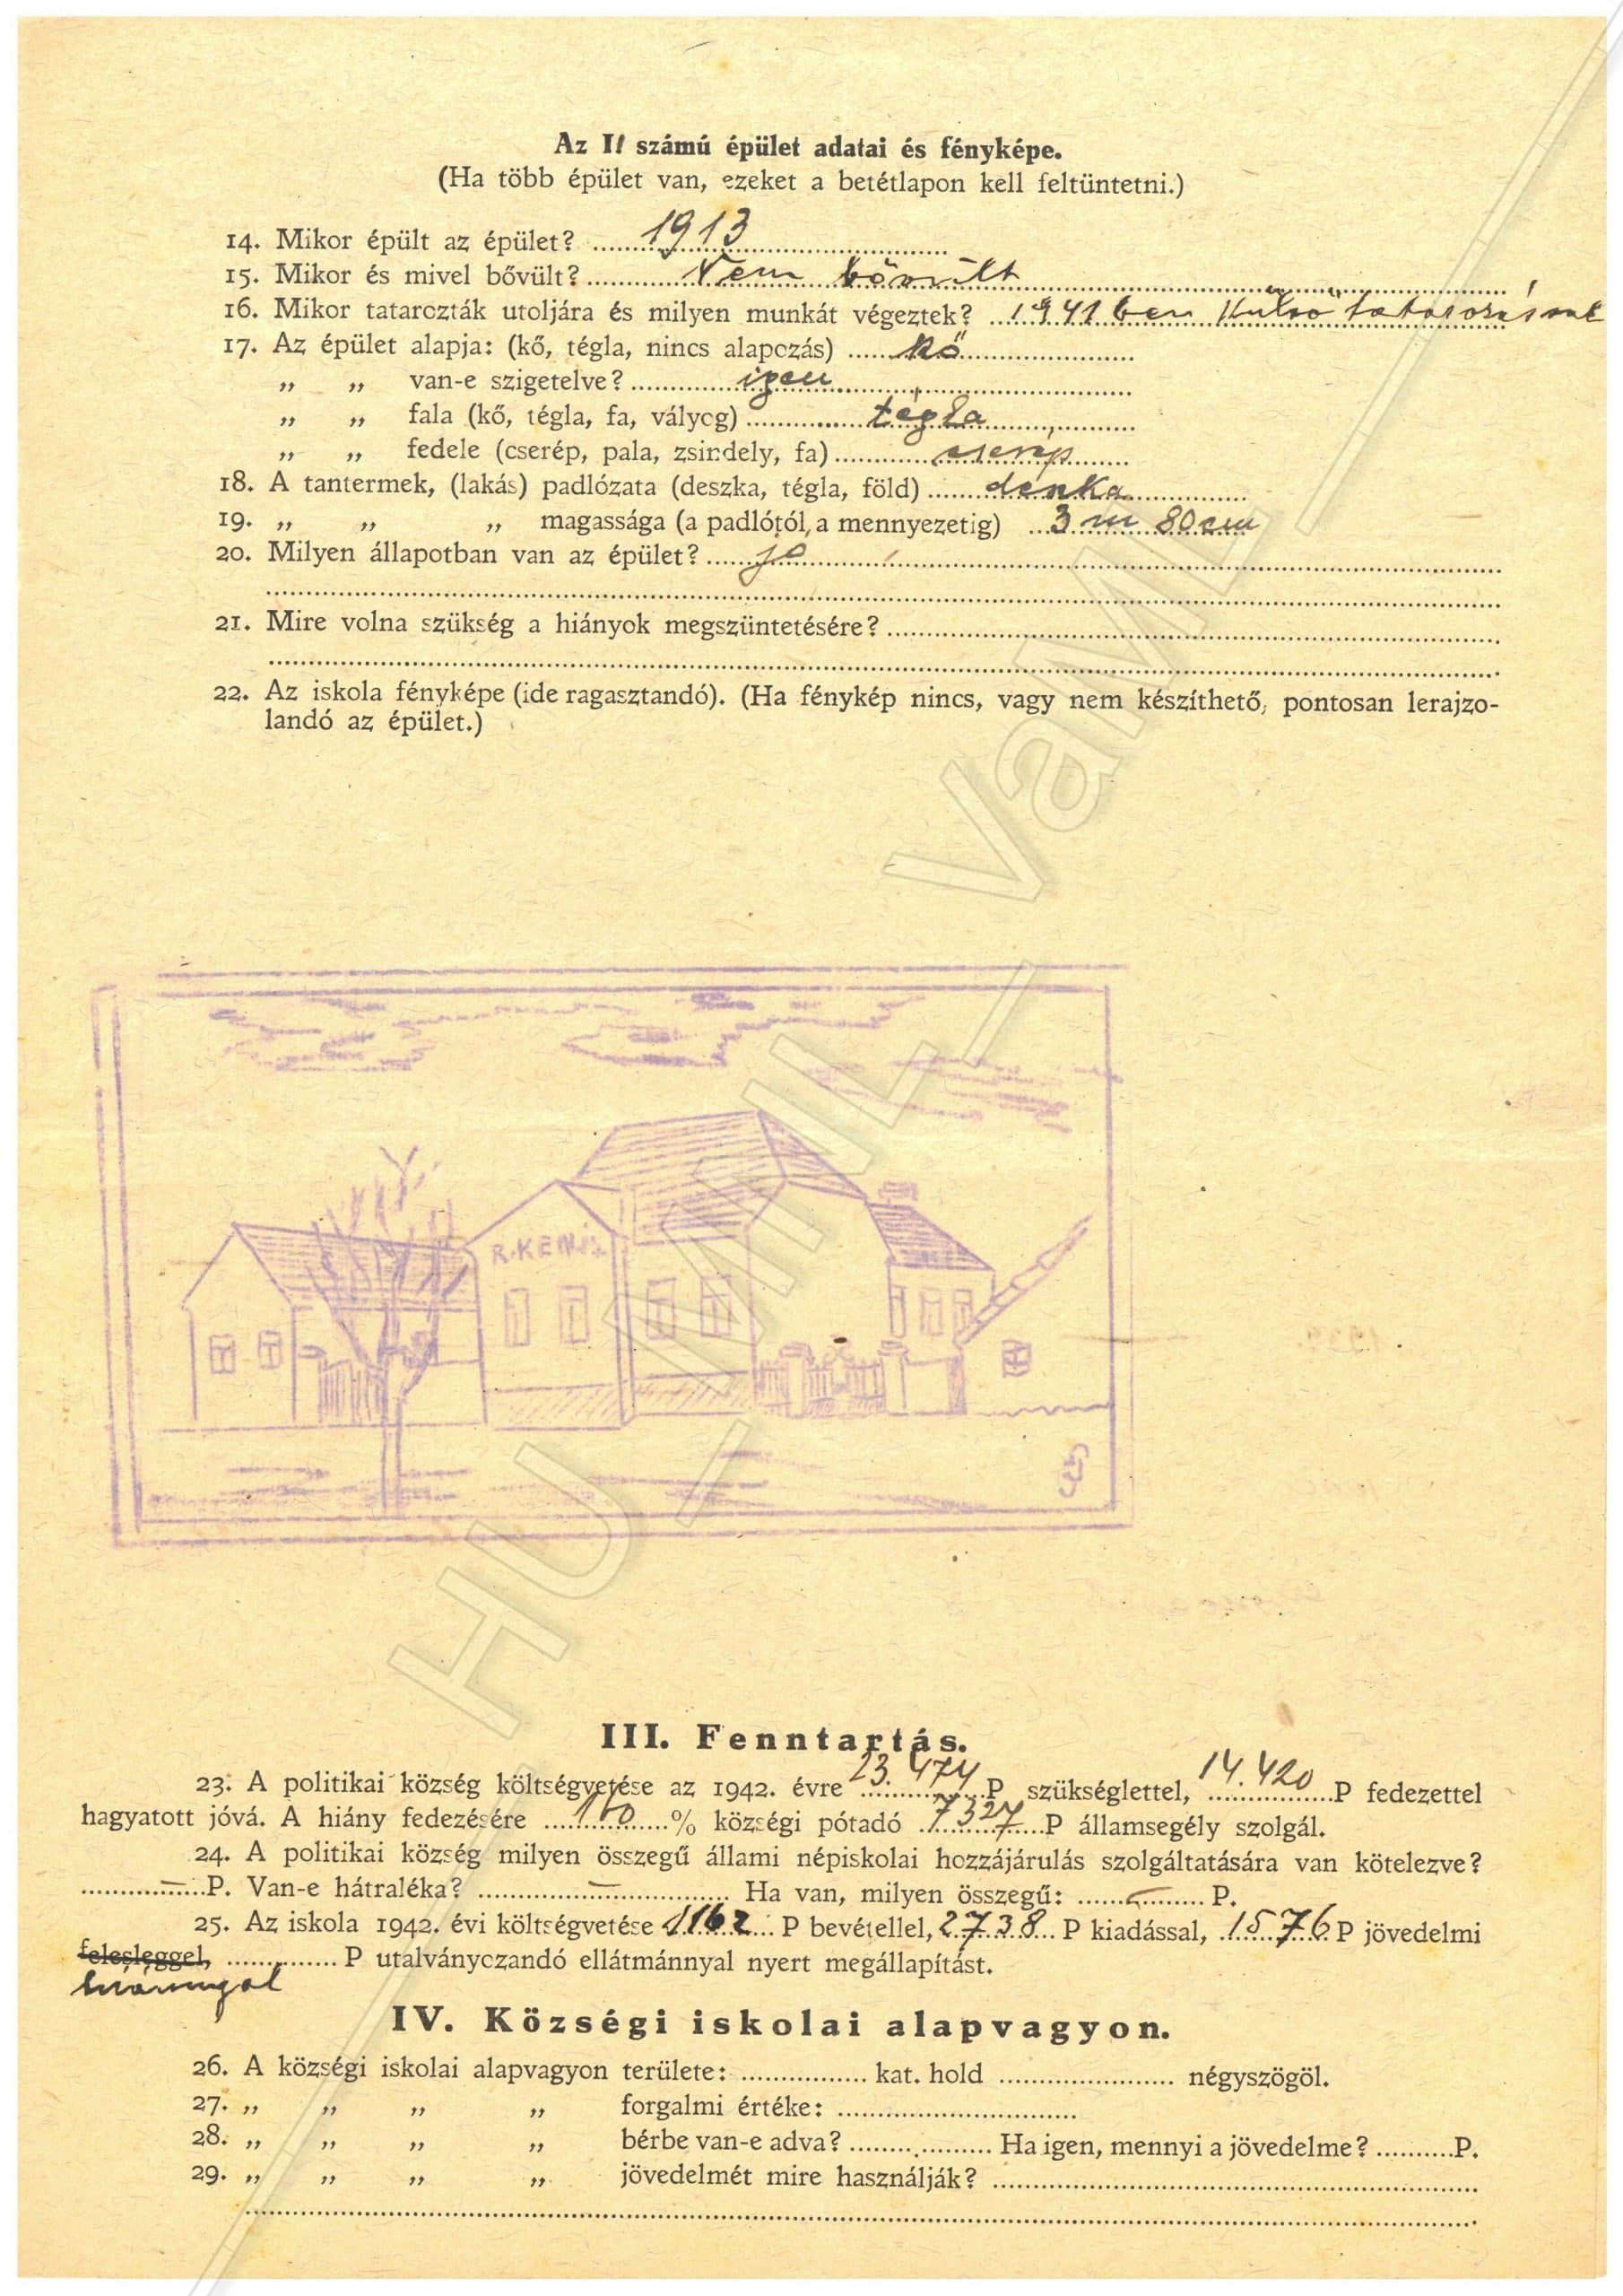 Az II számú épület adatai és fényképe.
(Ha több épület van, ezeket a betétlapon kell feltüntetni.)
14. Mikor épült az épület? 1913
15. Mikor és mivel bővült? Nem bővült
16. Mikor tatarozták utoljára és milyen munkát végeztek? 1941 ben külső tatarozásnak
17. Az épület alapja: (kő, tégla, nincs alapozás) kő
„ „ van-e szigetelve? igen
„ „ fala (kő, tégla, fa, vályog) tégla
„ „ fedele (cserép, pala, zsindely, fa) cserép
18. A tantermek, (lakás) padlózata (deszka, tégla, föld) deszka
19. „ „ „ magassága (a padlótól a mennyezetig) 3 m 80 cm
20. Milyen állapotban van az épület? jó
21. Mire volna szükség a hiányok megszüntetésére?
22. Az iskola fényképe (ide ragasztandó). (Ha fénykép nincs, vagy nem készíthető, pontosan lerajzo-
landó az épület.)
R.K.
III. Fenntartás.
23. A politikai község költségvetése az 1942. évre 23.474 P szükséglettel, 14.420 P fedezettel
hagyatott jóvá. A hiány fedezésére % községi pótadó 7327 P államsegély szolgál.
24. A politikai község milyen összegű állami népiskolai hozzájárulás szolgáltatására van kötelezve?
— P. Van-e hátraléka? — Ha van, milyen összegű: — P.
25. Az iskola 1942. évi költségvetése 1162 P bevétellel, 2738 P kiadással, 1576 P jövedelmi
felesleggel, P utalványozandó ellátmánnyal nyert megállapítást.
hiánnyal
IV. Községi iskolai alapvagyon.
26. A községi iskolai alapvagyon területe: kat. hold négyszögöl.
27. „ „ „ „ forgalmi értéke:
28. „ „ „ „ bérbe van-e adva? Ha igen, mennyi a jövedelme? P.
29. „ „ „ „ jövedelmét mire használják?
HU_MNL_VaML_